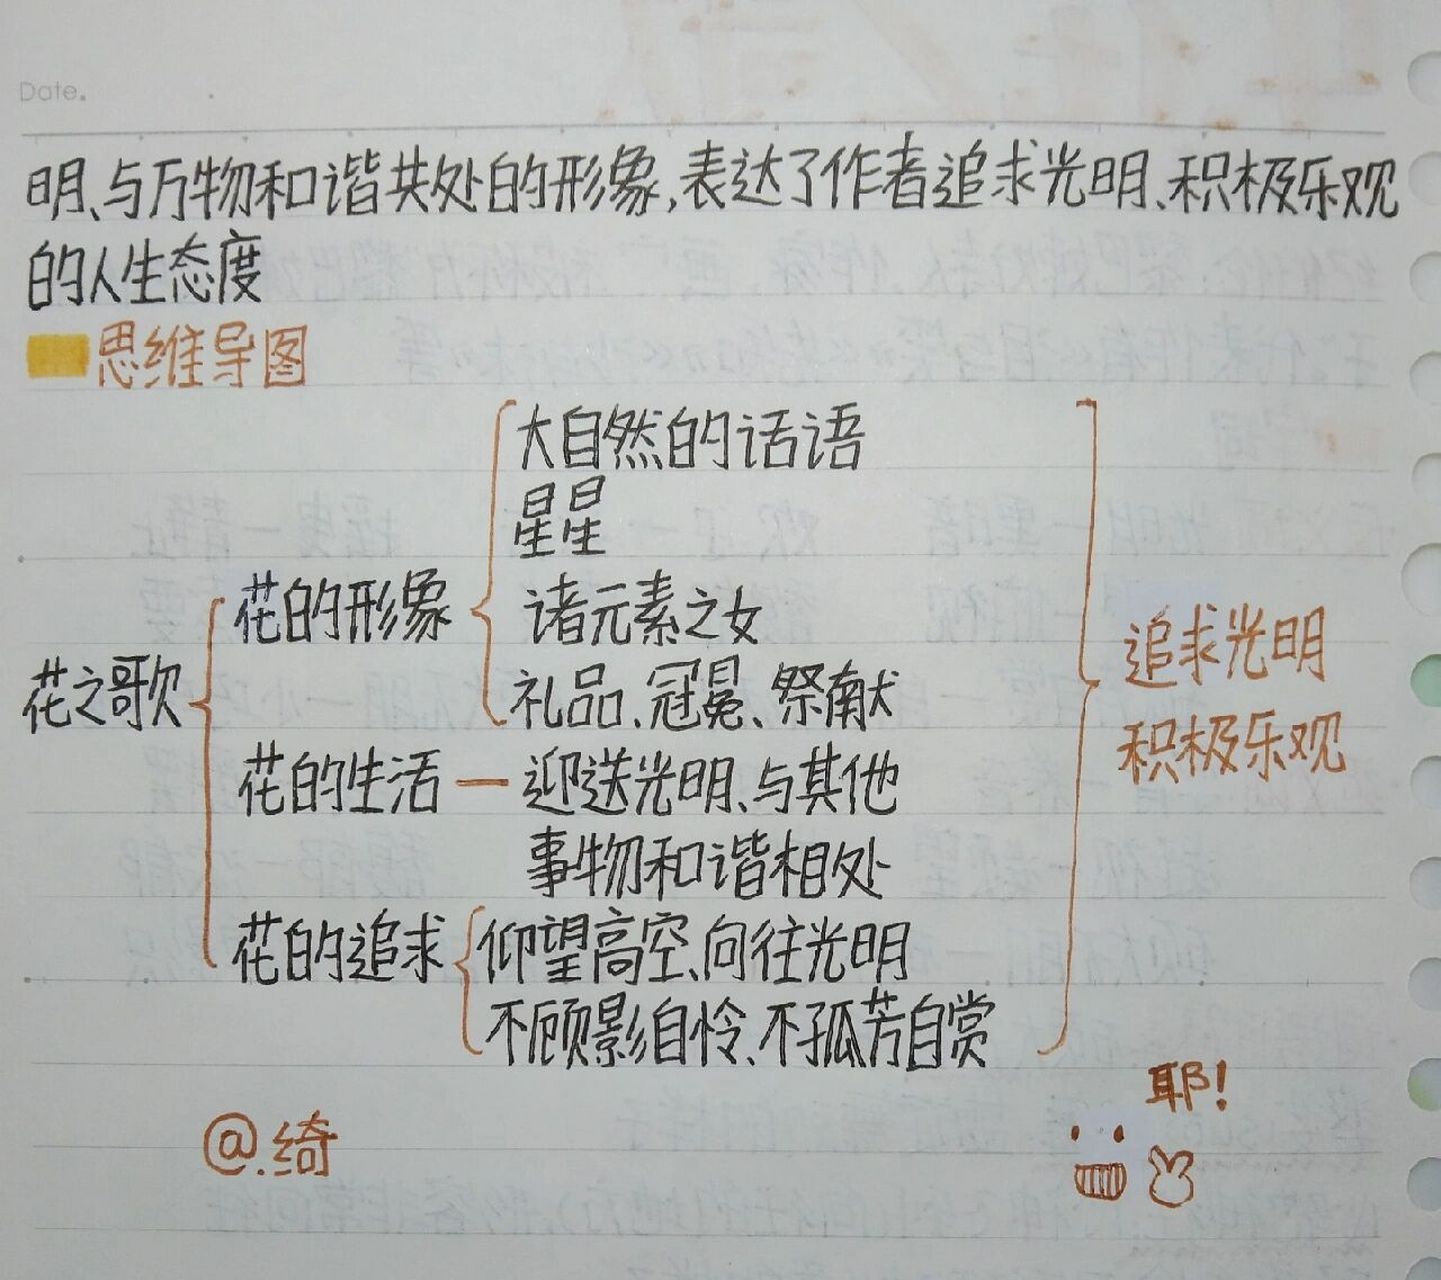 Date.
明、与万物和谐共处的形象,表达了作者追求光明、积极乐观
的人生态度
思维导图
花之歌
花的形象
大自然的话语
星星
诸元素之女
礼品、冠冕、祭献
花的生活 — 迎送光明、与其他
事物和谐相处
花的追求
仰望高空、向往光明
不顾影自怜、不孤芳自赏
追求光明
积极乐观
耶!
@.绮